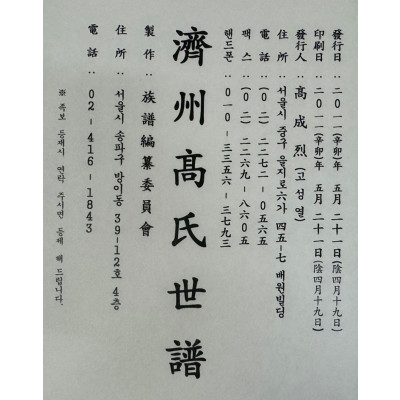 發行日 : 二〇一一(辛卯)年 五月 二十一日(陰四月十九日)
印刷日 : 二〇一一(辛卯)年 五月 二十一日(陰四月十九日)
發行人 : 高成烈(고성열)
住所 : 서울시 중구 을지로六가 四五-七 배원빌딩
電話 : (〇二) 二二七二-〇五六五
팩스 : (〇二) 二二六九-八六〇五
핸드폰 : 〇一〇-三三五六-三七九三
濟州高氏世譜
製作 : 族譜編纂委員會
住所 : 서울시 송파구 방이동 39-12호 4층
電話 : 02-416-1843
※ 족보 등재시 연락 주시면 등재 해 드립니다.